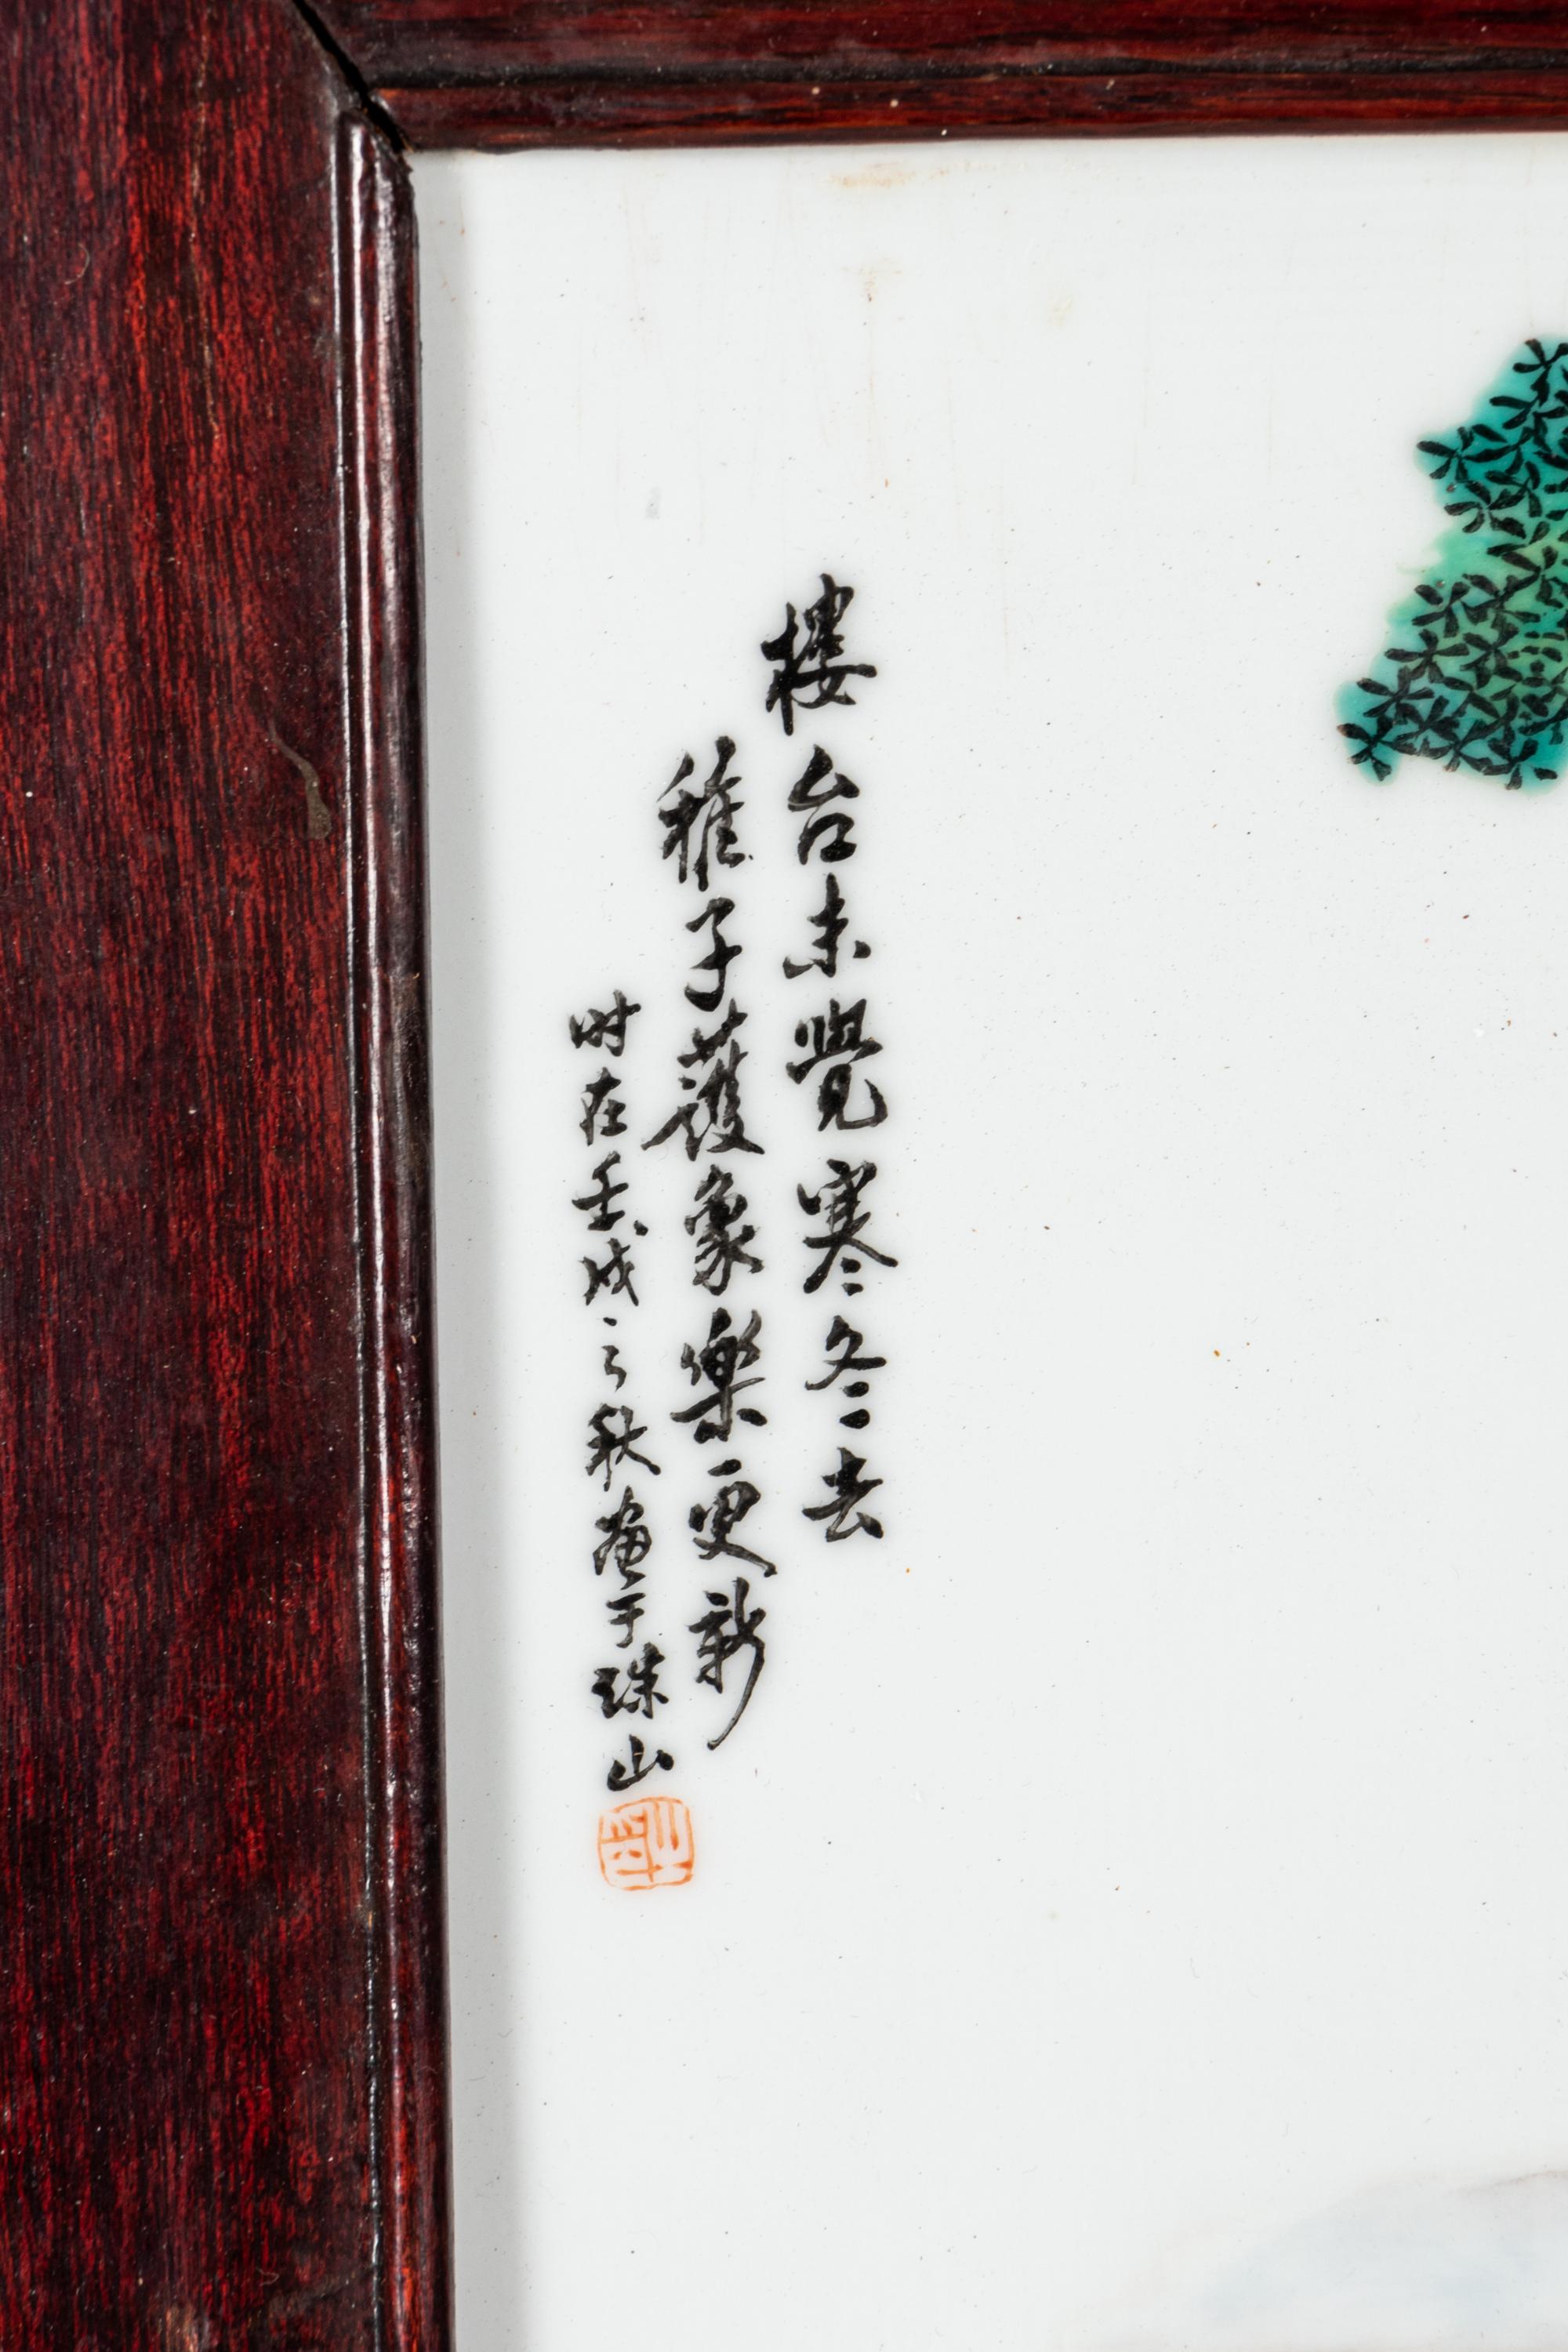 樓台未覺寒冬去
稚子護象樂更新
时在壬戌之秋畫于珠山